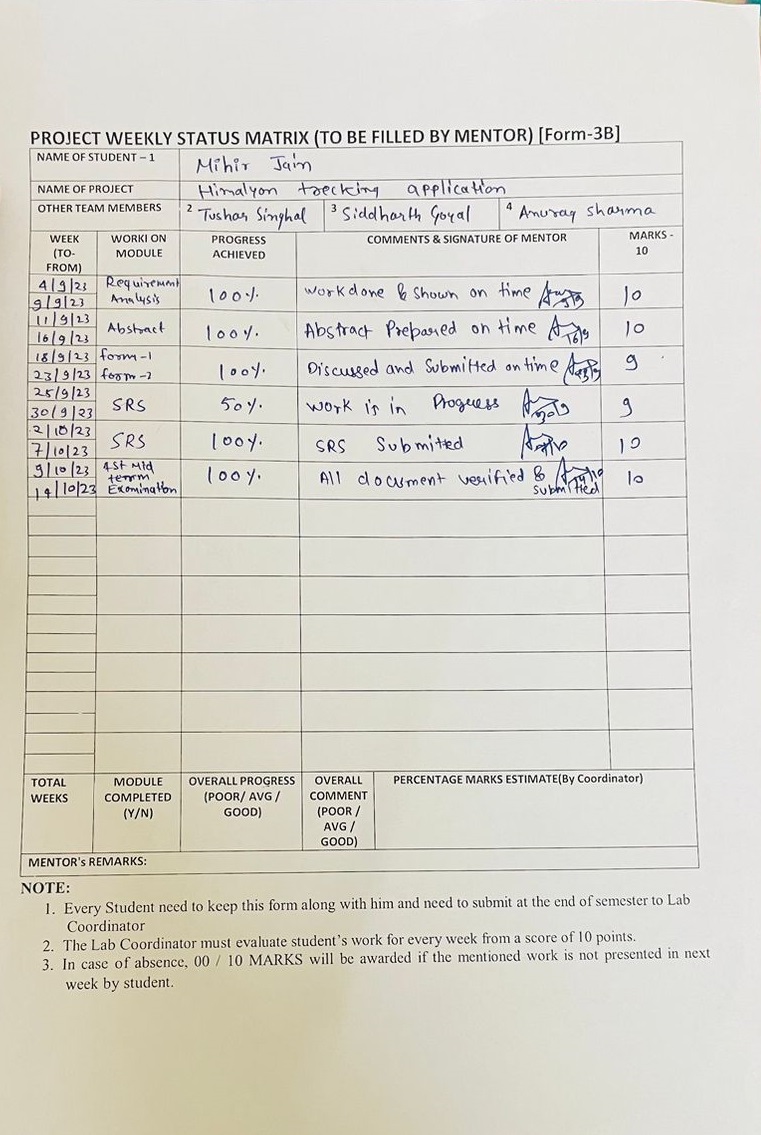 PROJECT WEEKLY STATUS MATRIX (TO BE FILLED BY MENTOR) [Form-3B]
NAME OF STUDENT – 1 Mihir Jain
NAME OF PROJECT Himalyon trecking application
OTHER TEAM MEMBERS 2 Tushar Singhal 3 Siddharth Goyal 4 Anurag Sharma
WEEK (TO-FROM) WORKI ON MODULE PROGRESS ACHIEVED COMMENTS & SIGNATURE OF MENTOR MARKS - 10
4/9/23 9/9/23 Requirement Analysis 100% Work done & Shown on time 10
11/9/23 16/9/23 Abstract 100% Abstract Prepared on time 10
18/9/23 23/9/23 form-1 form-2 100% Discussed and Submitted on time 9
25/9/23 30/9/23 SRS 50% Work is in Progress 9
2/10/23 7/10/23 SRS 100% SRS Submited 10
9/10/23 14/10/23 1st Mid term Examination 100% All document verified & submitted 10
TOTAL WEEKS MODULE COMPLETED (Y/N) OVERALL PROGRESS (POOR/ AVG / GOOD) OVERALL COMMENT (POOR / AVG / GOOD) PERCENTAGE MARKS ESTIMATE(By Coordinator)
MENTOR's REMARKS:
NOTE:
1. Every Student need to keep this form along with him and need to submit at the end of semester to Lab
Coordinator
2. The Lab Coordinator must evaluate student's work for every week from a score of 10 points.
3. In case of absence, 00 / 10 MARKS will be awarded if the mentioned work is not presented in next
week by student.